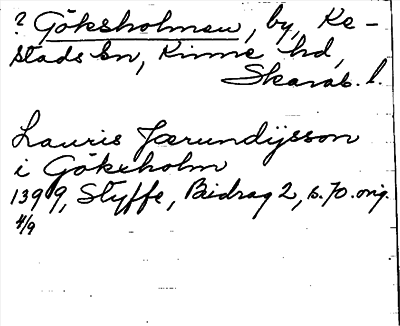 ? Göksholmen, by, Ke-
stads sn, Kinne hd,
Skarab. l.
Lauris Jærundijsson
i Gökeholm
1399, Styffe, Bidrag 2, s. 70. orig.
4/9